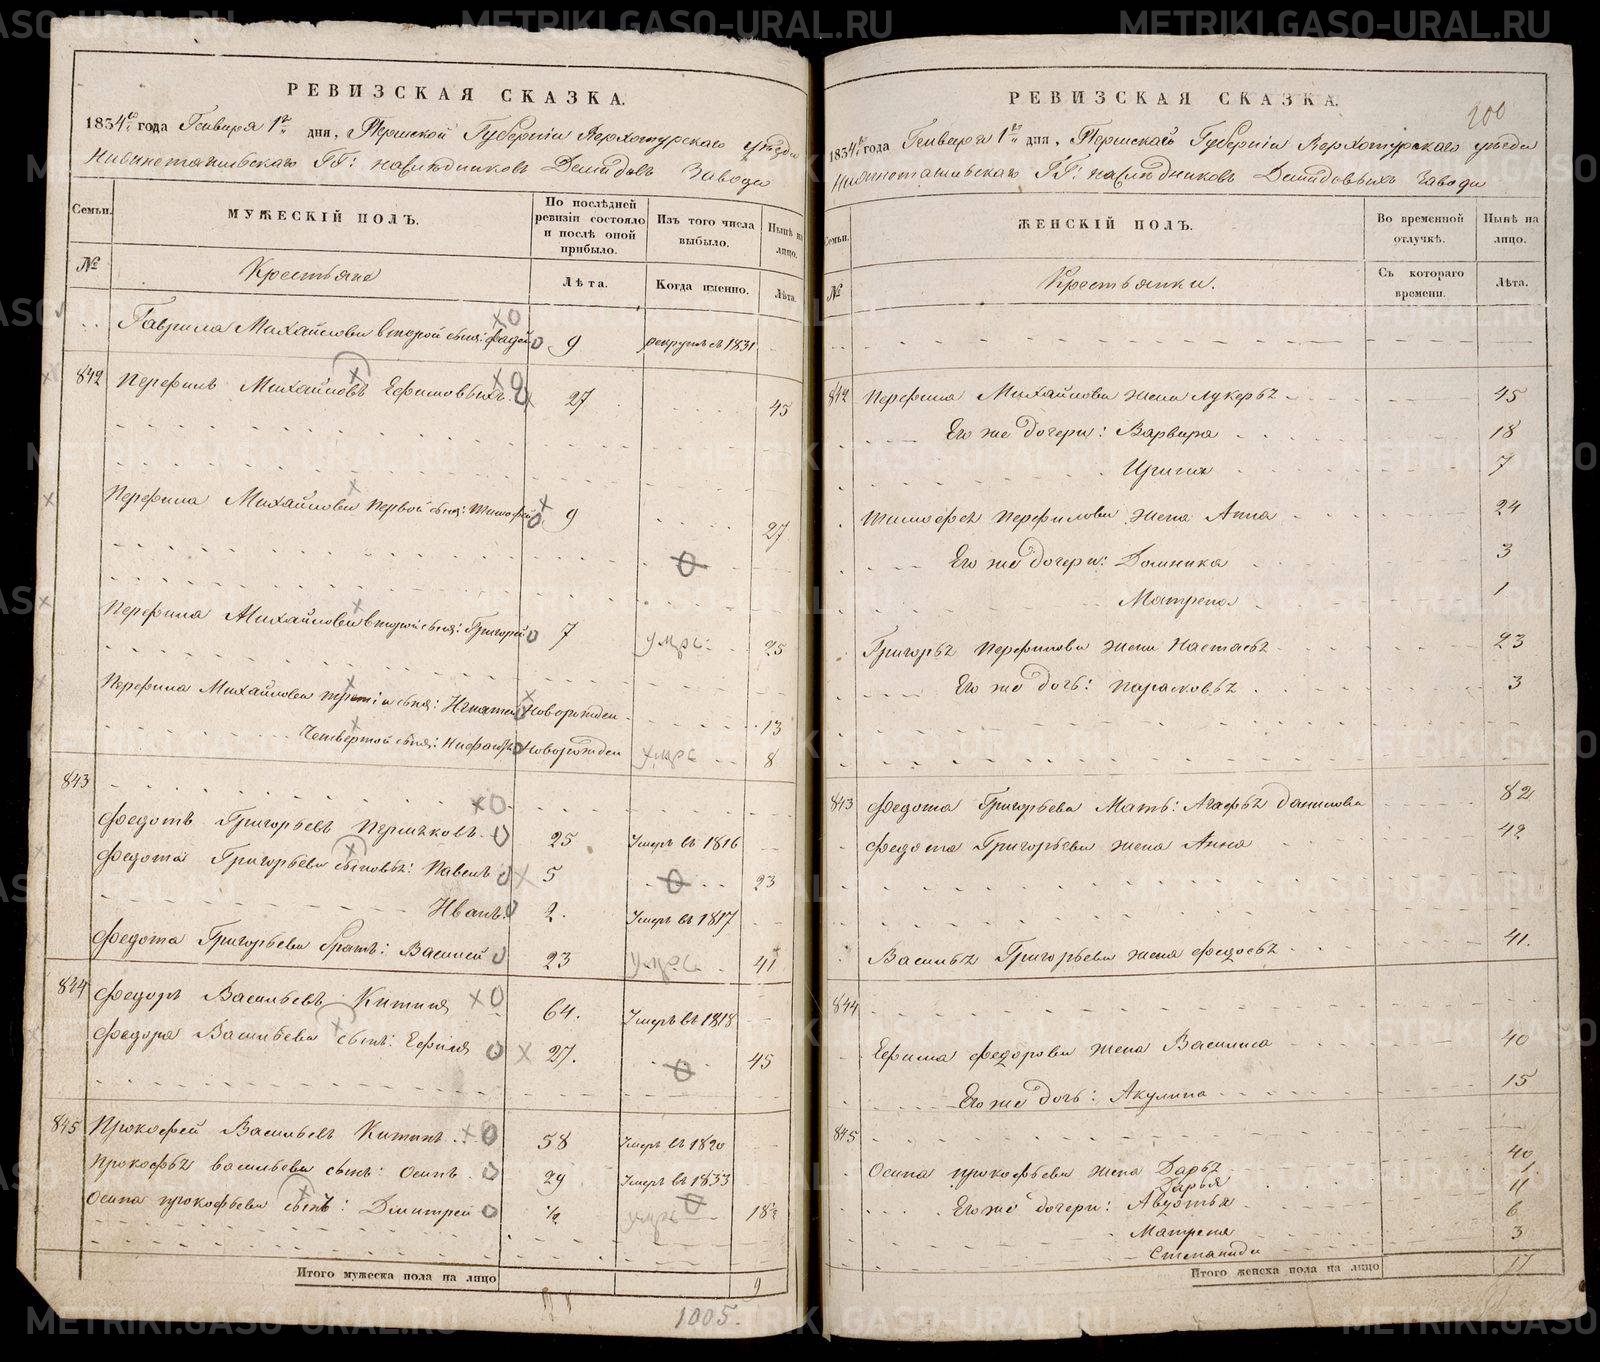 РЕВИЗСКАЯ СКАЗКА.
1834го года Генваря 1го дня, Пермской Губерніи Верхотурскаго уѣзда
Нижнетагильскаго ГГ: наслѣдниковъ Демидовъ Завода
Семьи.
МУЖЕСКІЙ ПОЛЪ.
По послѣдней ревизіи состояло и послѣ оной прибыло.
Изъ того числа выбыло.
Нынѣ на лицо.
№
Крестьяне
Лѣта.
Когда именно.
Лѣта.
Гаврила Михайлова второй сынъ: Фадей 9 рекрутъ съ 1831
842 Перфилъ Михайловъ Ефимовыхъ 27 45
Перфила Михайлова первой сынъ: Тимофей 9 27
Перфила Михайлова второй сынъ: Григорей 7 умре 25
Перфила Михайлова третій сынъ: Игнатей Новорожден 13
Четвертой сынъ: Никифоръ Новорожден умре 8
843
Федотъ Григорьевъ Першаковъ 25 Умеръ въ 1816
Федота Григорьева сыновья: Павелъ 5 23
Иванъ 2. Умеръ въ 1817
Федота Григорьева братъ: Василей 23 умре 41
844 Федоръ Васильевъ Китаия 64. Умеръ въ 1818
Федора Васильева сынъ: Ефимъ 27. 45
845 Прокофей Васильевъ Китаия 58 Умеръ въ 1820
Прокофья Васильева сынъ: Осипъ 29 Умеръ въ 1833
Осипа Прокофьева сынъ: Дмитрей ½ умре 18½
Итого мужеска пола на лицо 9
1005.
РЕВИЗСКАЯ СКАЗКА.
200
1834го года Генваря 1го дня, Пермской Губерніи Верхотурскаго уѣзда
Нижнетагильскаго ГГ: наслѣдниковъ Демидовыхъ Завода
Семьи.
ЖЕНСКІЙ ПОЛЪ.
Во временной отлучкѣ.
Нынѣ на лицо.
№
Крестьянки.
Съ котораго времени.
Лѣта.
842 Перфила Михайлова жена Лукерья 45
Его же дочери: Варвара 18
Ирина 7
Тимофея Перфилова жена Анна 24
Его же дочери: Домника 3
Матрена 1
Григорья Перфилова жена Настасья 23
Его же дочь: Парасковья 3
843 Федота Григорьева Мать: Агафья Данилова 82
Федота Григорьева жена Анна 42
Василья Григорьева жена Федосья 41.
844
Ефима Федорова жена Василиса 40
Его же дочь: Акулина 15
845
Осипа Прокофьева жена Дарья 40
Дарья 1
Его же дочери: Авдотья 11
Матрена 6
Степанида 3
Итого женска пола на лицо 17
METRIKI.GASO-URAL.RU